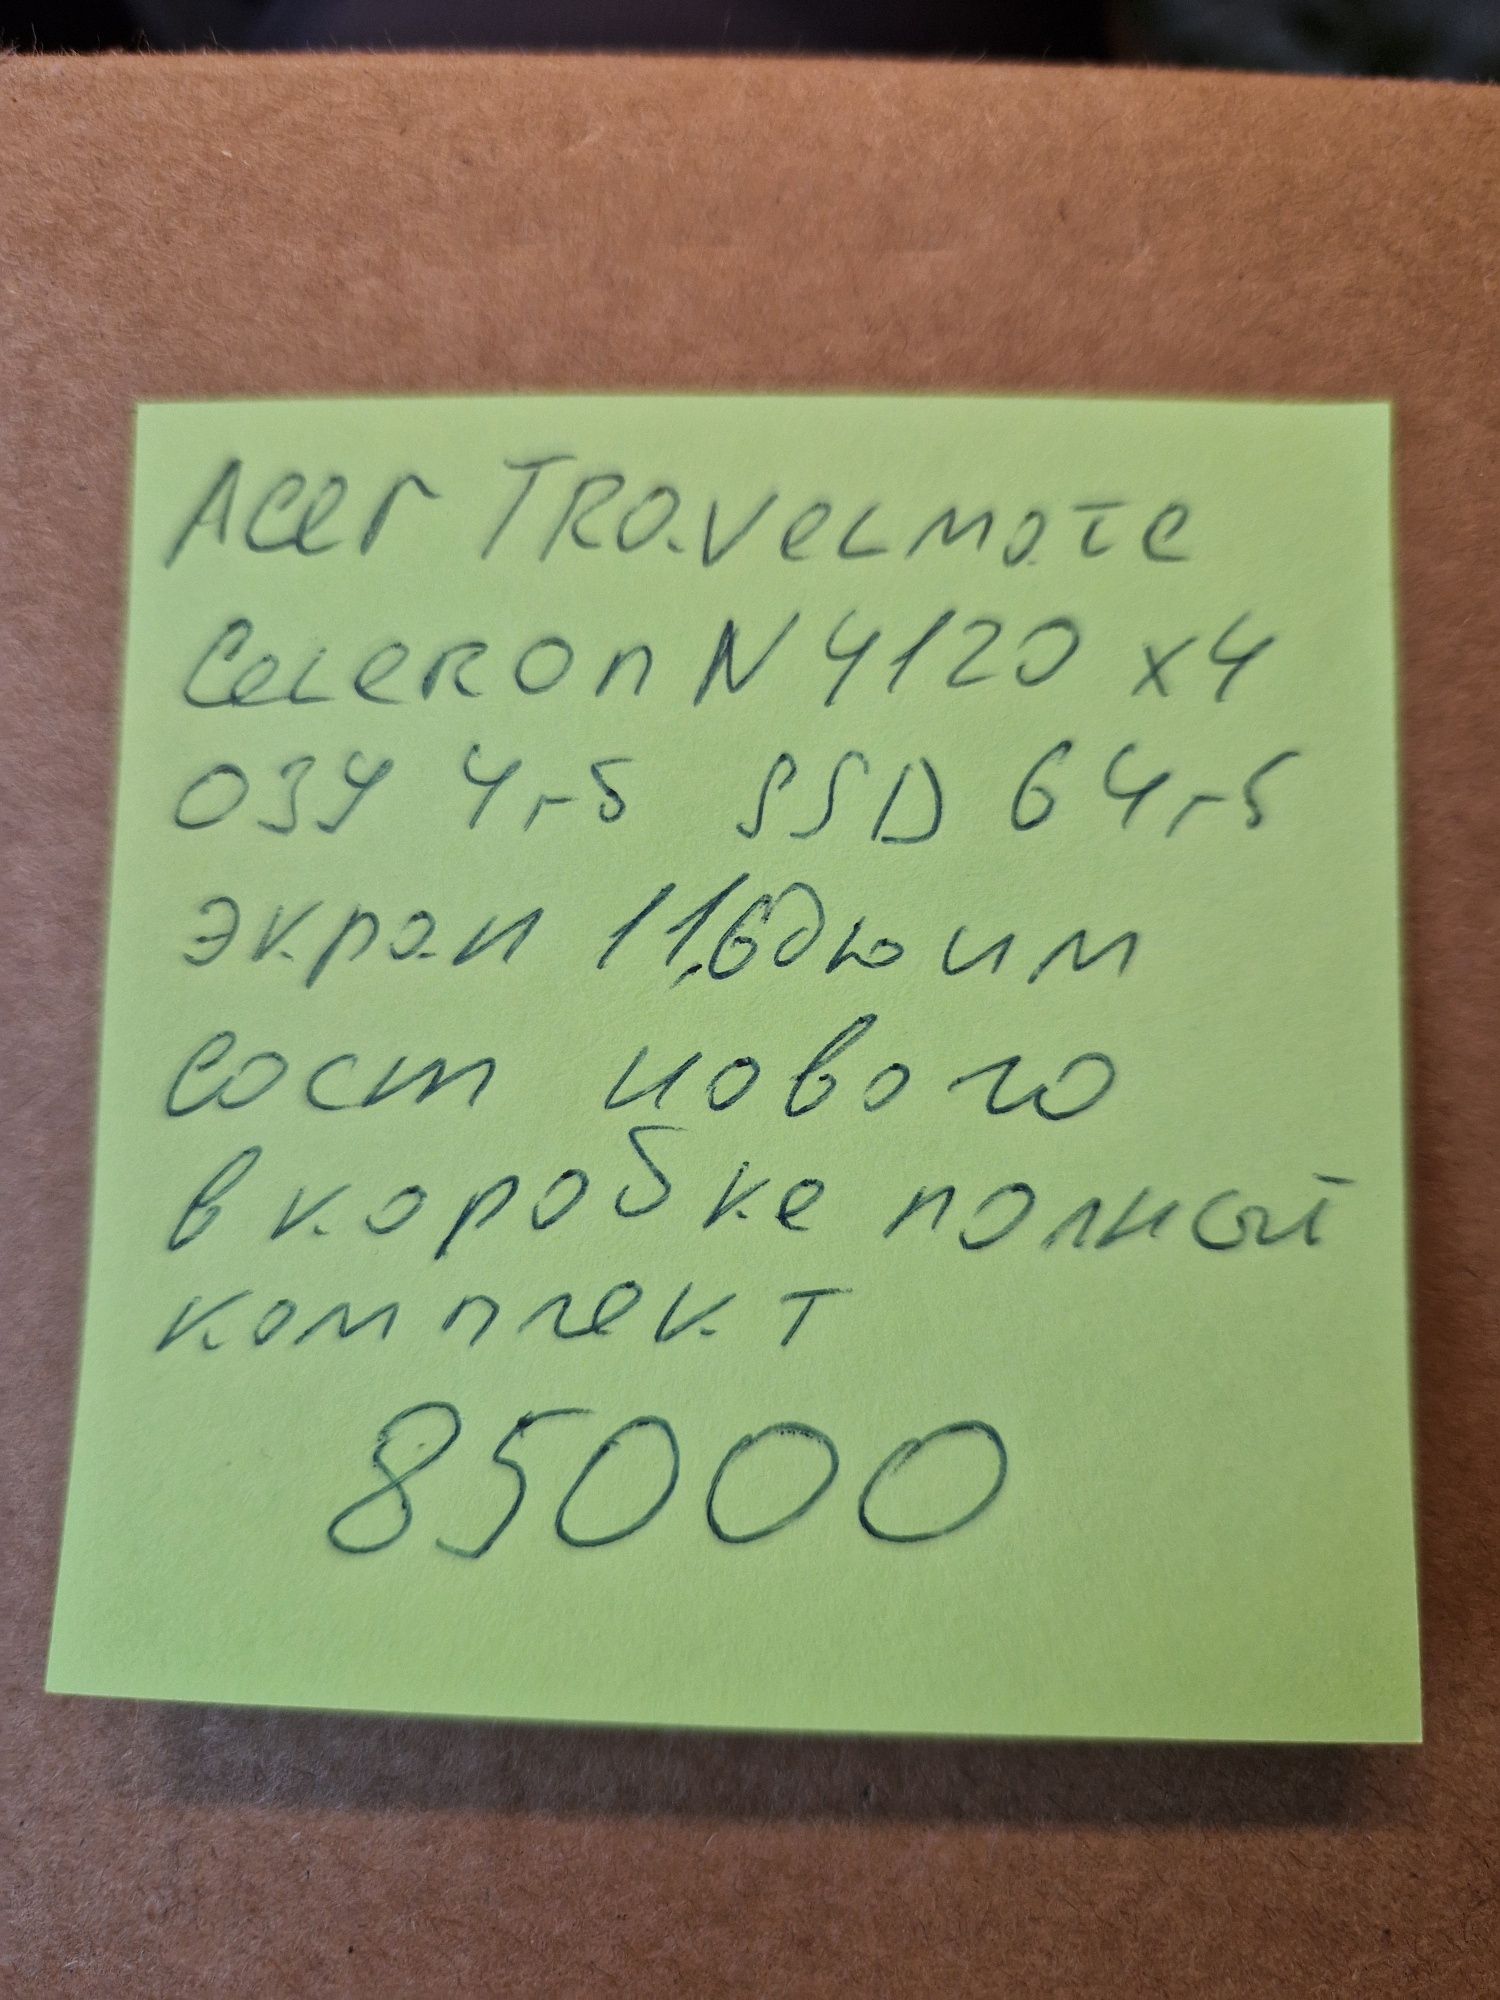 Acer Travelmate
Celeron N4120 x4
ОЗУ 4гб SSD 64гб
экран 11,6дюим
сост нового
в коробке полной
комплект
85000